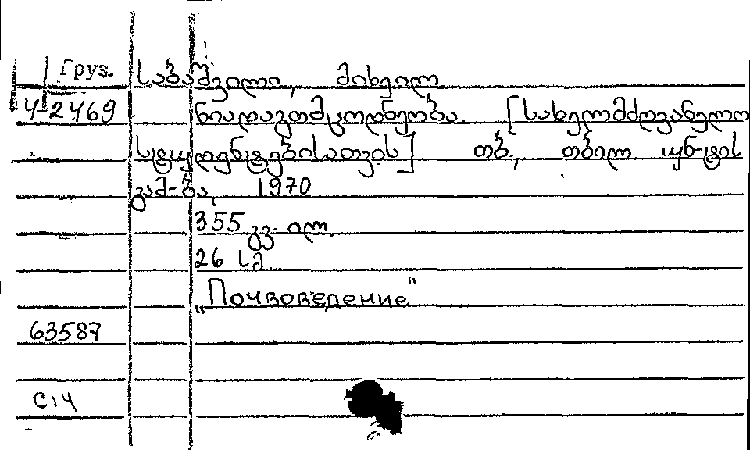 Груз. საბაშვილი, მიხეილ
4-2469 ნიადაგთმცოდნეობა. [სახელმძღვანელო
სტუდენტებისათვის] თბ., თბილ. უნ-ტის
გამ-ბა, 1970
355 გვ. ილ.
26 სმ
„Почвоведение"
63587
C14